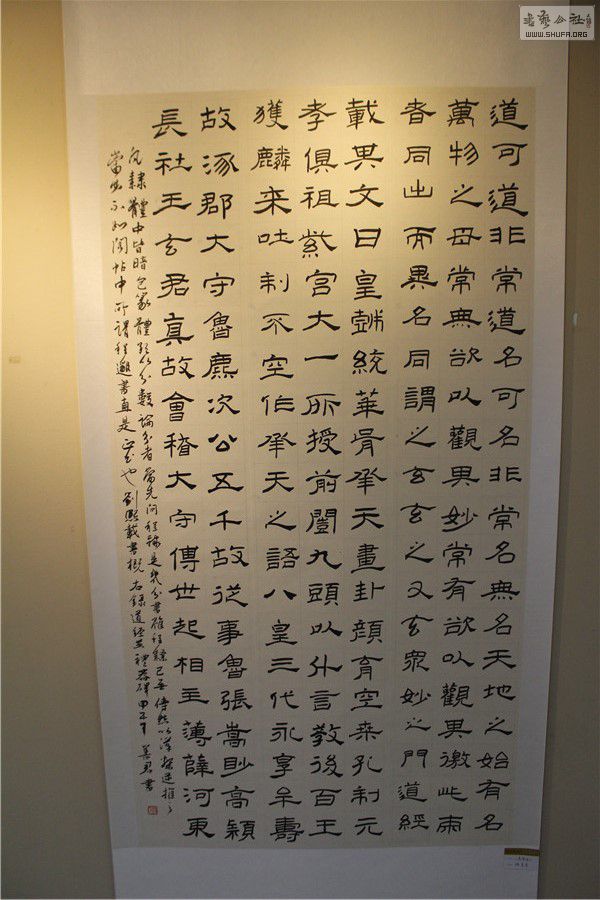 書藝公社
WWW.SHUFA.ORG
道可道非常道名可名非常名無名天地之始有名
萬物之母常無欲以觀其妙常有欲以觀其徼此兩
者同出而異名同謂之玄玄之又玄眾妙之門道經
載其文曰皇戲統華胥承天畫卦顏育空桑孔制元
孝俱祖紫宮大一所授前闓九頭以什言教後百王
獲麟来吐制不空作承天之語八皇三代永享牟壽
故涿郡大守魯麃次公五千故從事魯張嵩眇高潁
長社王玄君真故會稽大守傅世起相主薄薛河東
凡隸體中皆暗包篆體欲以分數論分者當先問程隸是幾分書雖程隸已無傳然以漢隸逆推之
當必不如閣帖中所謂程邈書直是正書也劉熙載書概右錄道經並禮器碑書